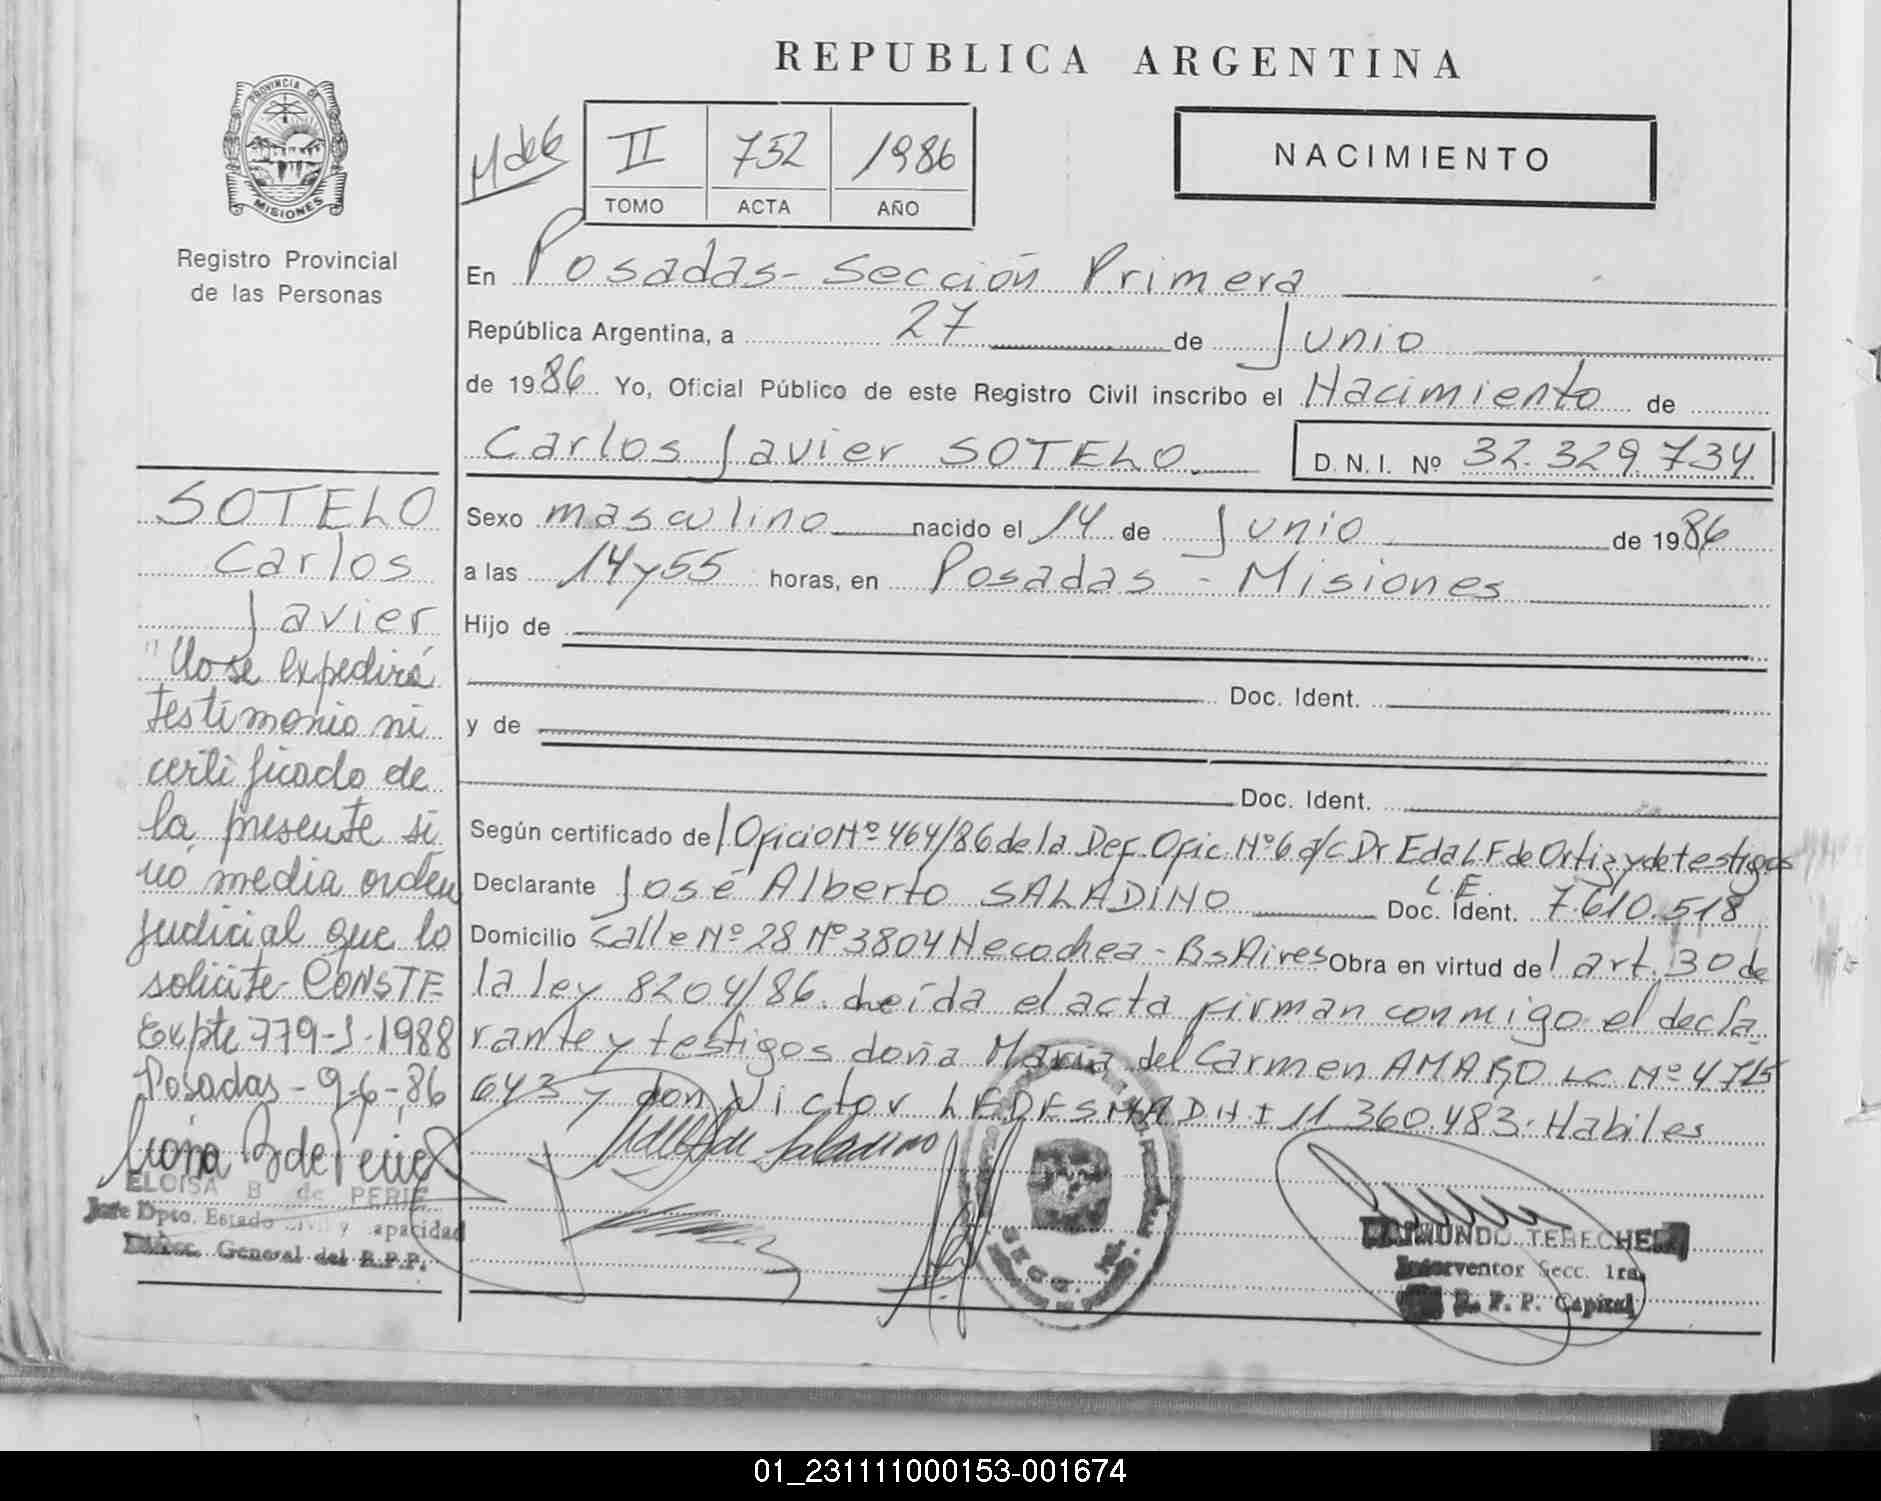 REPUBLICA ARGENTINA
PROVINCIA DE
MISIONES
Registro Provincial
de las Personas
II 752 1986
TOMO ACTA AÑO
NACIMIENTO
En Posadas - Sección Primera
República Argentina, a 27 de Junio
de 1986 Yo, Oficial Público de este Registro Civil inscribo el Nacimiento de
Carlos Javier SOTELO
D. N. I. Nº 32.329.734
Sexo masculino nacido el 14 de Junio de 1986
a las 14 y 55 horas, en Posadas - Misiones
Hijo de
Doc. Ident.
y de
Doc. Ident.
Según certificado de l Oficio Nº 464/86 de la Def. Ofic. Nº 6 a/c Dr Eda L F de Ortiz y de testigos
Declarante José Alberto SALADINO L.E. Doc. Ident. 7610.518
Domicilio Calle Nº 28 Nº 3804 Necochea - Bs Aires Obra en virtud de l art. 30 de
la ley 8204/86. Leída el acta firman conmigo el decla
rante y testigos doña María del Carmen AMARO LC Nº 4715
643 y don Victor LEDESMA DNI 11.360.483. Habiles
SOTELO
Carlos
Javier
"No se expedirá
testimonio ni
certificado de
la presente si
nó media orden
judicial que lo
solicite - CONSTE
Expte 779-S-1988
Posadas - 9-6-86
ELOISA B de PERIE
Jefe Dpto. Estado Civil y Capacidad
Direcc. General del R.P.P.
RAIMUNDO TERECHE
Interventor Secc. 1ra.
R. P. P. Capital
01_231111000153-001674